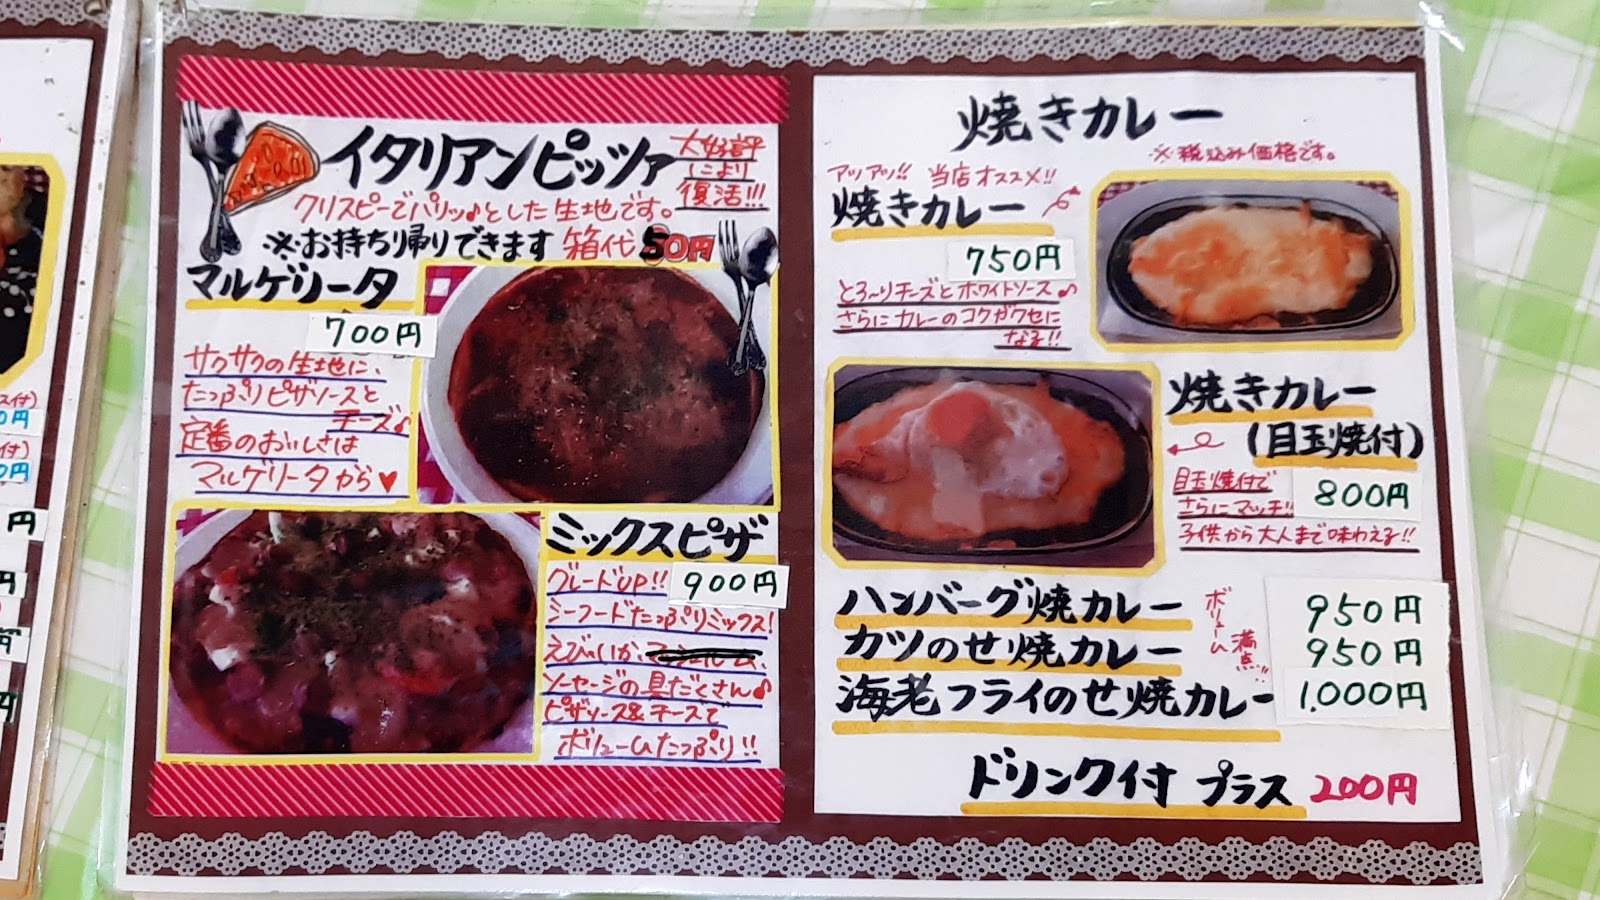 イタリアンピッツァ
大好評
により
復活!!!
クリスピーでパリッ♪とした生地です。
※お持ち帰りできます 箱代 50円
マルゲリータ
700円
サクサクの生地に、
たっぷりピザソースと
チーズ♪
定番のおいしさは
マルゲリータから♥
ミックスピザ
グレードUP!! 900円
シーフードたっぷりミックス!
えび、いか、マッシュルーム、
ソーセージの具だくさん♪
ピザソース&チーズで
ボリュームたっぷり!!
焼きカレー
※税込み価格です。
アツアツ!! 当店オススメ!!
焼きカレー
750円
とろ〜りチーズとホワイトソース♪
さらにカレーのコクがクセに
なる!!
焼きカレー
(目玉焼付)
目玉焼付で
さらにマッチ!!
800円
子供から大人まで味わえる!!
ハンバーグ焼カレー 950円
カツのせ焼カレー 950円
海老フライのせ焼カレー 1,000円
ボリューム
満点!!
ドリンク付 プラス 200円
付)
0円
付)
0円
円
円
円
円